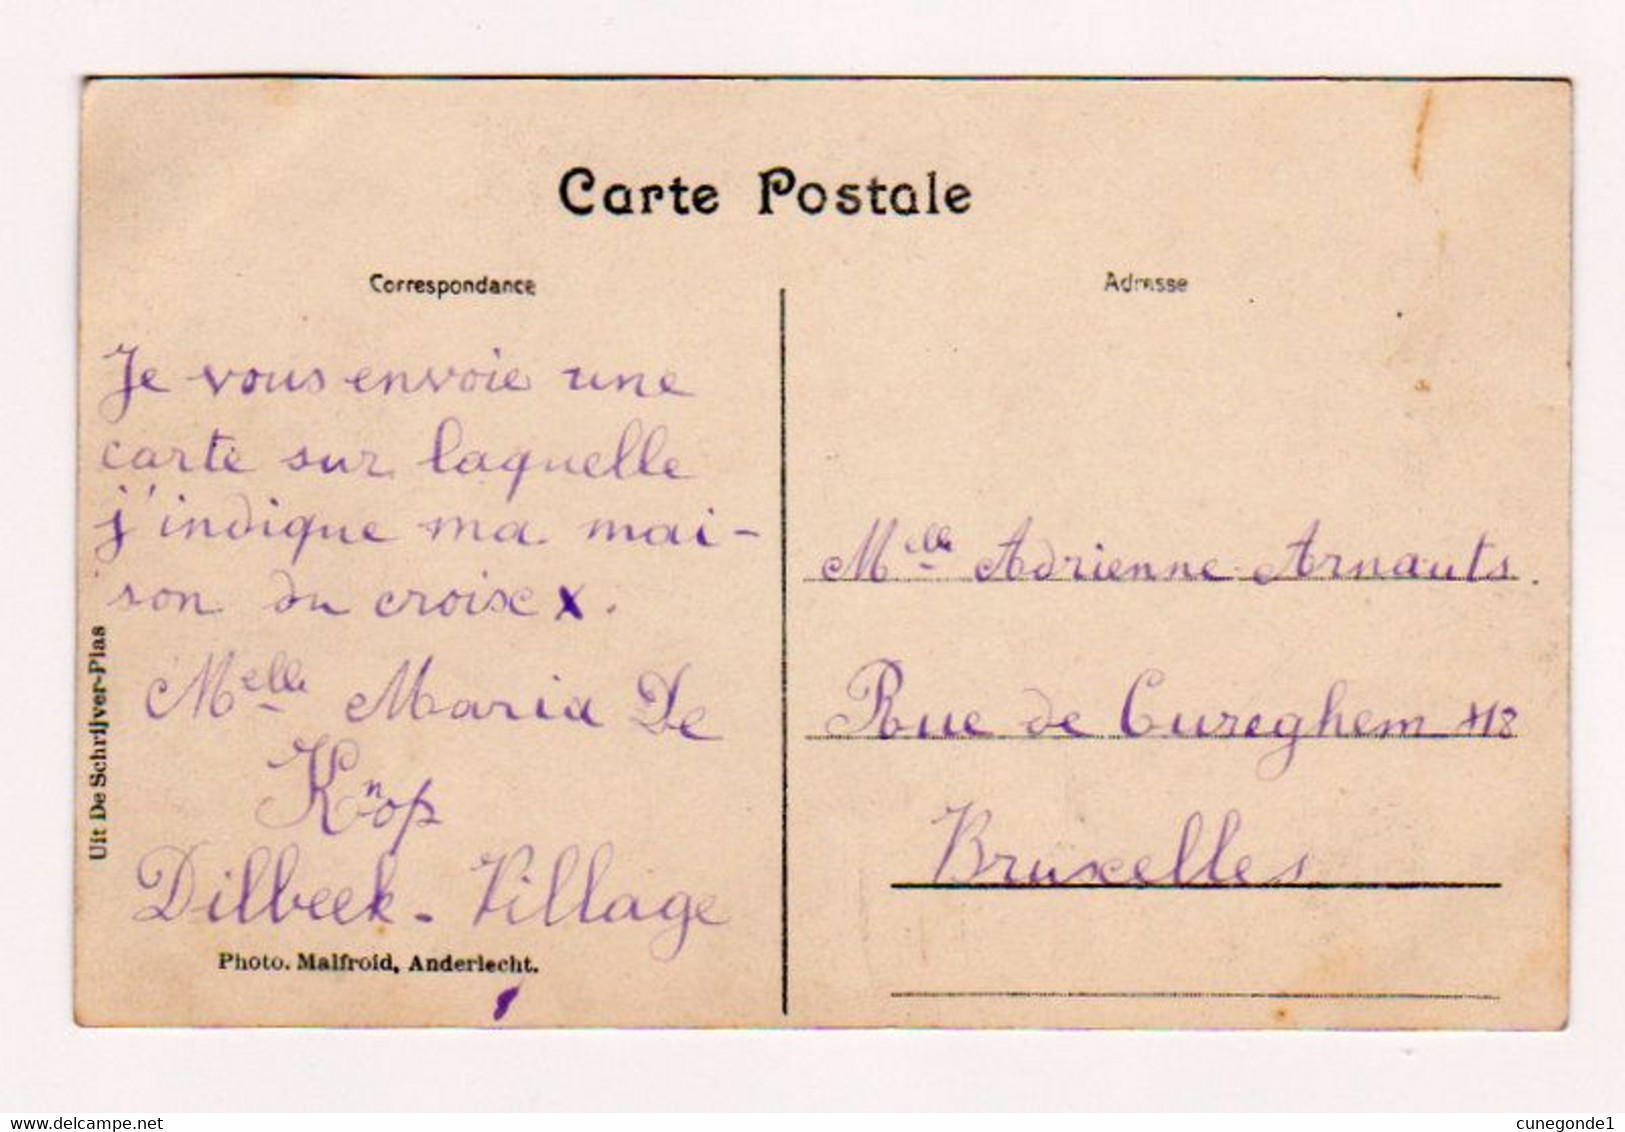 Carte Postale
Correspondance
Adresse
Je vous envoie une
carte sur laquelle
j'indique ma mai-
son du croise x.
Melle Maria De
Knop
Dilbeek - Village
Uit De Schrijver-Plas
Photo. Malfroid, Anderlecht.
Melle Adrienne Arnauts.
Rue de Cureghem
Bruxelles
delcampe.net
cunegonde1